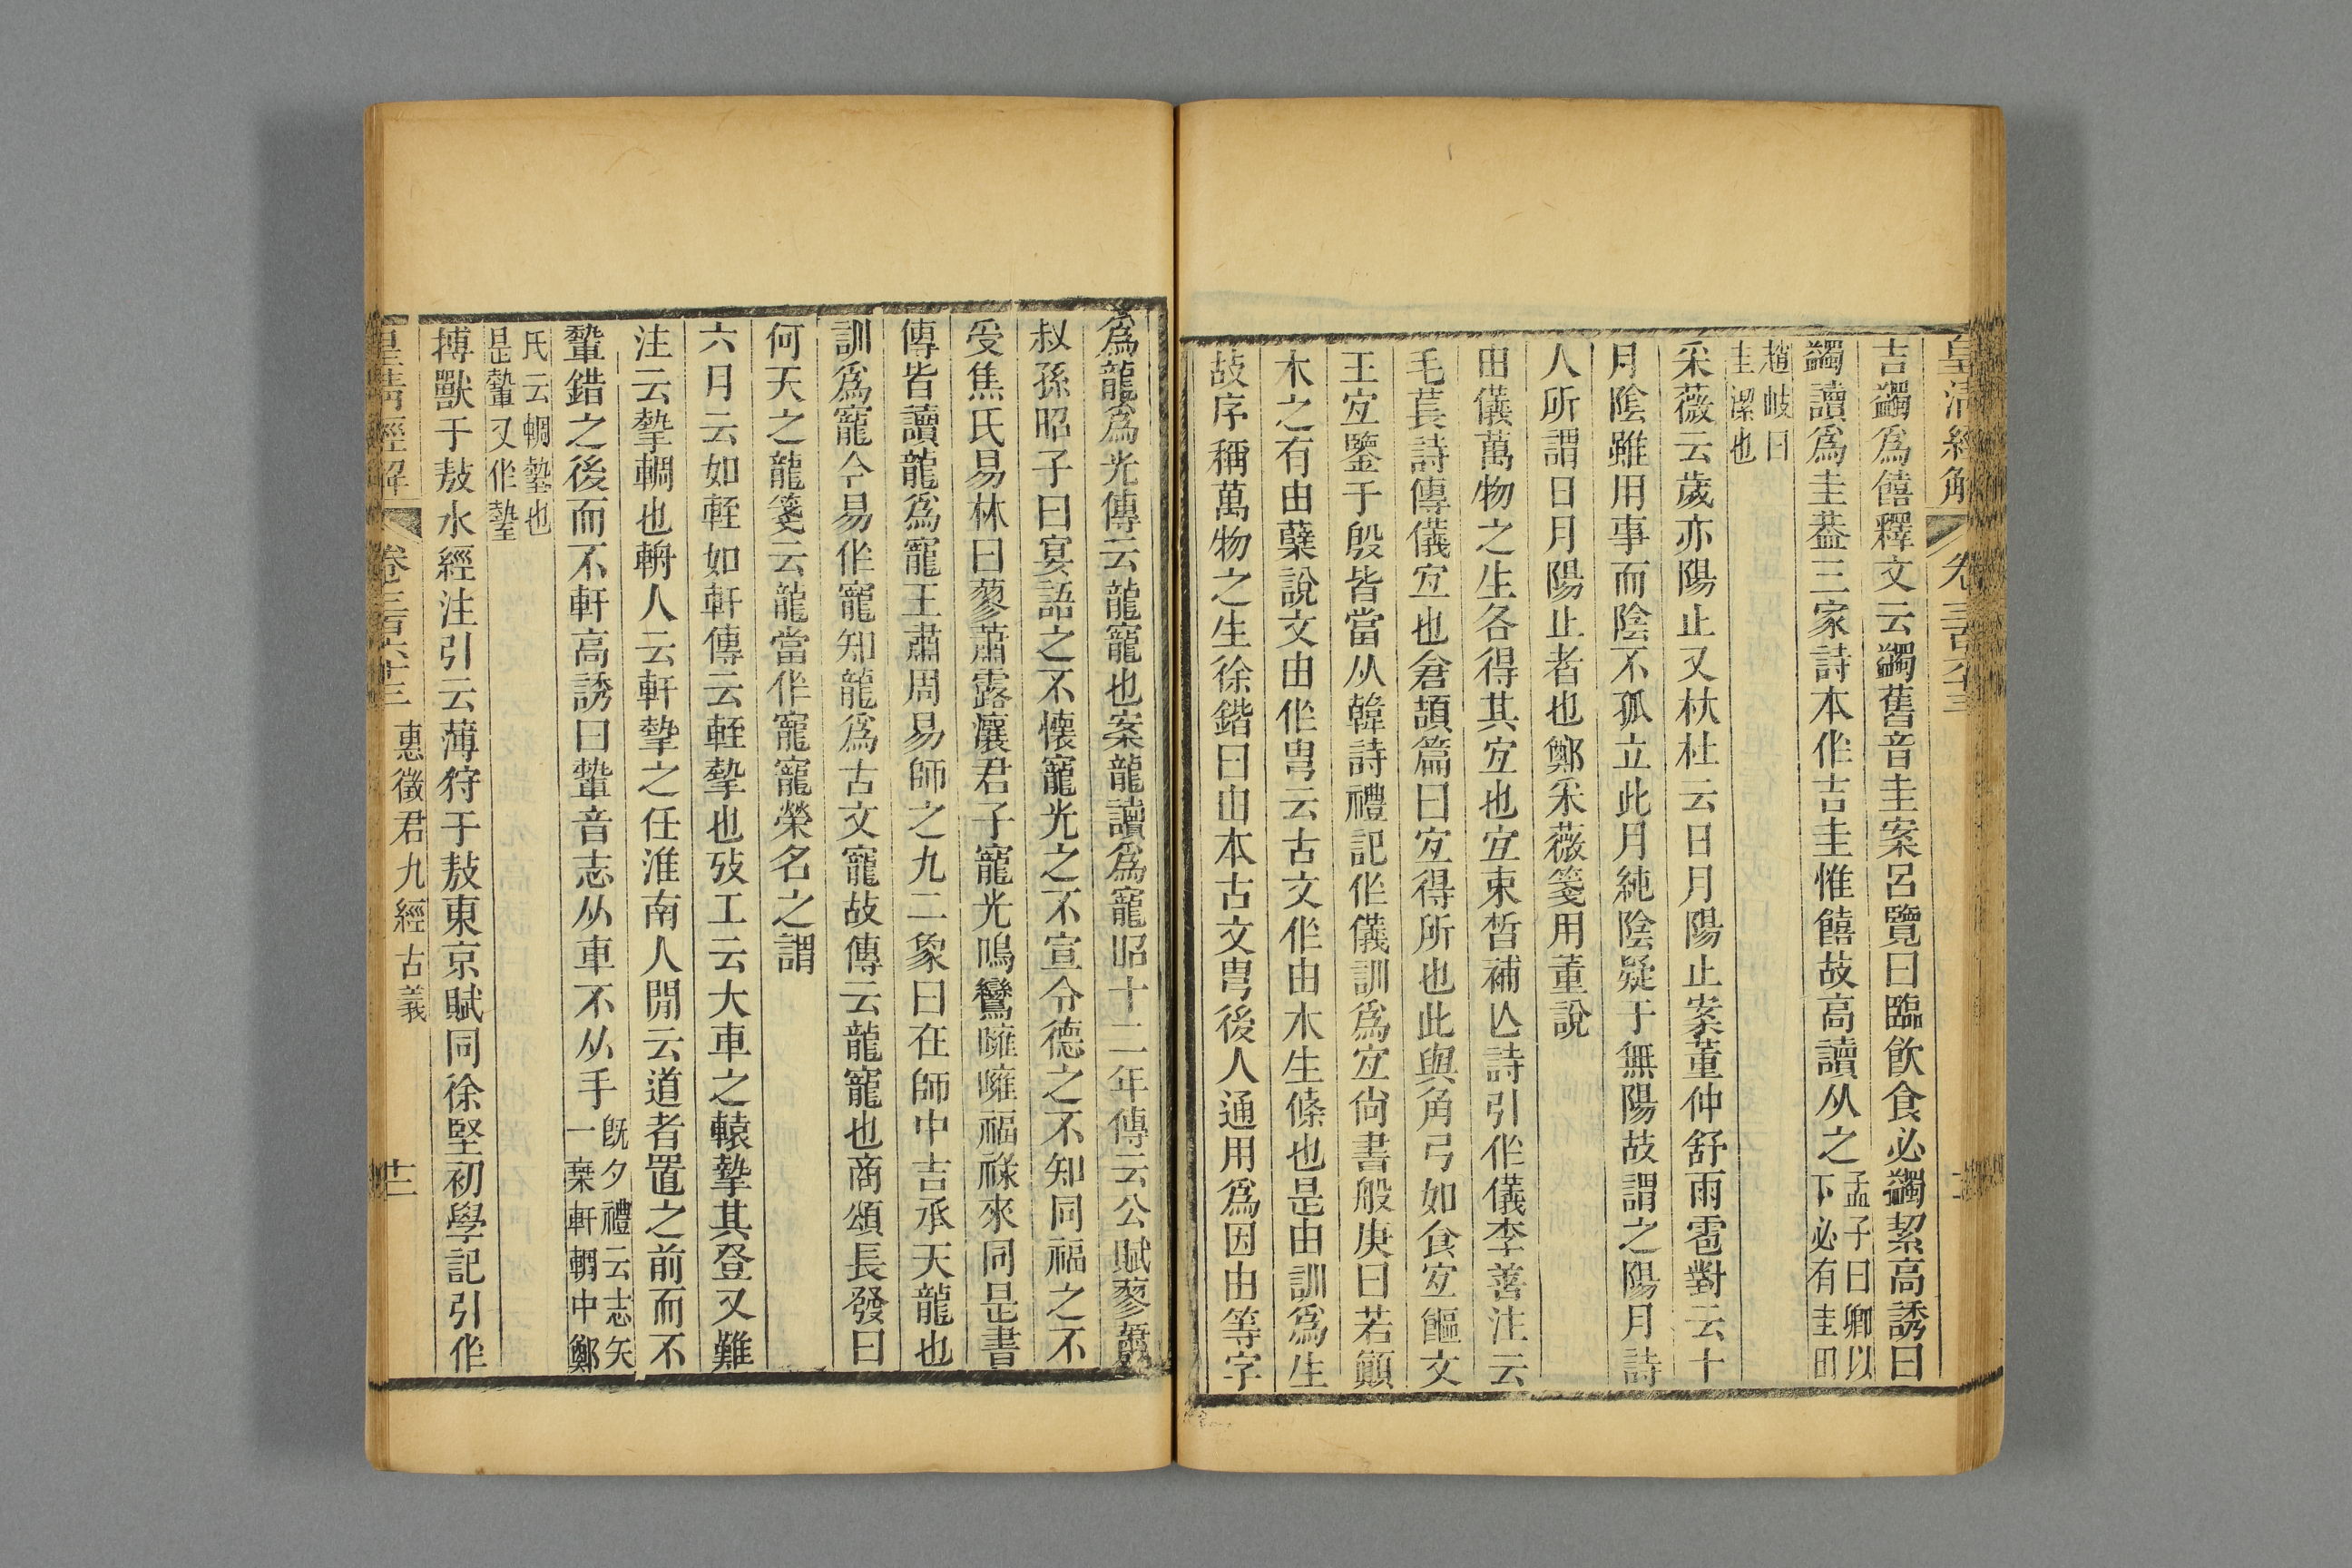 皇清經解 卷三百六十三
吉蠲爲饎釋文云蠲舊音圭案呂覽曰臨飲食必蠲絜高誘曰
蠲讀爲圭葢三家詩本作吉圭惟饎故高讀从之孟子曰卿以下必有圭田
趙岐曰圭潔也
采薇云歲亦陽止又杕杜云日月陽止案董仲舒雨雹對云十
月陰雖用事而陰不孤立此月純陰疑于無陽故謂之陽月詩
人所謂日月陽止者也鄭采薇箋用董說
由儀萬物之生各得其宜也宜束皙補亾詩引作儀李善注云
毛萇詩傳儀宜也倉頡篇曰宜得所也此與角弓如食宜饇文
王宜鑒于殷皆當从韓詩禮記作儀訓爲宜尙書般庚曰若顚
木之有由蘖說文由作甹云古文作由木生條也是由訓爲生
故序稱萬物之生徐鍇曰由本古文甹後人通用爲因由等字
爲龍爲光傳云龍寵也案龍讀爲寵昭十二年傳云公賦蓼蕭
叔孫昭子曰宴語之不懷寵光之不宣令德之不知同福之不
受焦氏易林曰蓼蕭露瀼君子寵光鳴鸞噰噰福祿來同是書
傳皆讀龍爲寵王肅周易師之九二象曰在師中吉承天龍也
訓爲寵今易作寵知龍爲古文寵故傳云龍寵也商頌長發曰
何天之龍箋云龍當作寵寵榮名之謂
六月云如輊如軒傳云輊摯也攷工云大車之轅摯其登又難
注云摯輖也輈人云軒摯之任淮南人閒云道者置之前而不
䡹錯之後而不軒高誘曰䡹音志从車不从手旣夕禮云志矢一椉軒輖中鄭
氏云輖墊也是䡹又作墊
搏獸于敖水經注引云薄狩于敖東京賦同徐堅初學記引作
皇清經解 卷三百六十三 惠徵君九經古義 十二